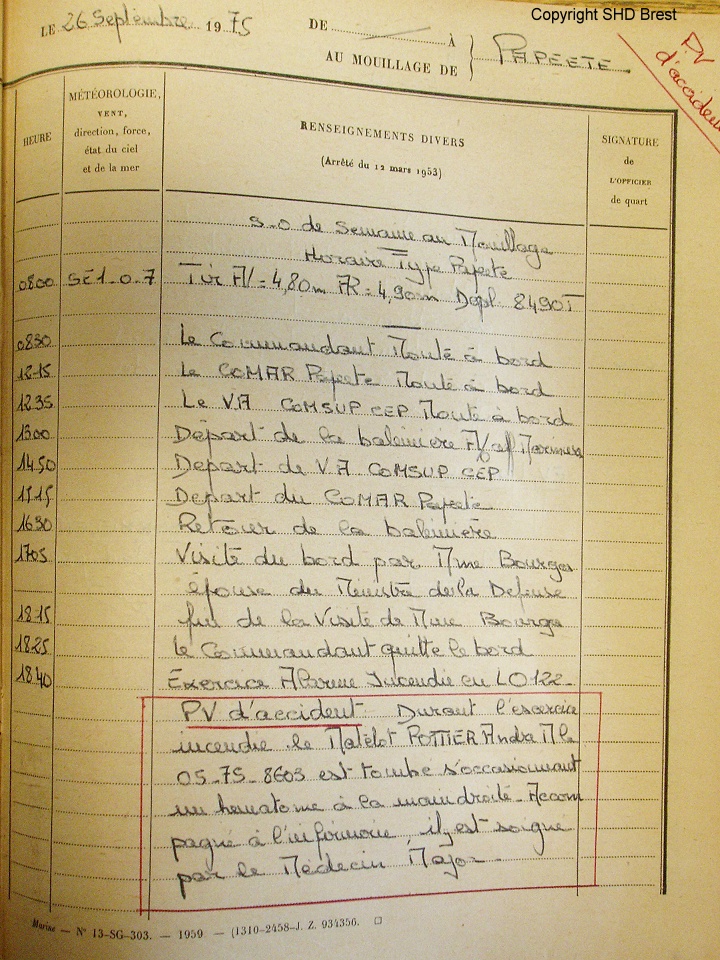 Copyright SHD Brest
LE 26 Septembre 1975 DE À
AU MOUILLAGE DE PAPEETE
PV
d'accident
HEURE
MÉTÉOROLOGIE,
VENT,
direction, force,
état du ciel
et de la mer
RENSEIGNEMENTS DIVERS
(Arrêté du 12 mars 1953)
SIGNATURE
de
L'OFFICIER
de quart
S.O de Semaine au Mouillage
Horaire Type Papeete
0800 SE 1.0.7 Tir AV = 4,80m AR = 4,90m Depl 8490T
0830 Le Commandant Monté à bord
1215 Le COMAR Papeete Monté à bord
1235 Le VA COMSUP CEP Monté à bord
1300 Départ de la baleinière
1450 Depart de V.A COMSUP CEP
1515 Depart du COMAR Papeete
1630 Retour de la baleinière
1705 Visite du bord par Mme Bourges
épouse du Ministre de la Defense
1815 fin de la Visite de Mme Bourges
1825 Le Commandant quitte le bord
1840 Exercice Alarme Incendie en LO 122
PV d'accident Durant l'exercice
incendie le Matelot POTTIER André Mle
05.75.8603 est tombé s'occasionnant
un hematome à la main droite. Accom
pagné à l'infirmerie, il est soigné
par le Médecin Major
Marine — N° 13-SG-303. — 1959. — (1310-2458-J. Z. 934356.